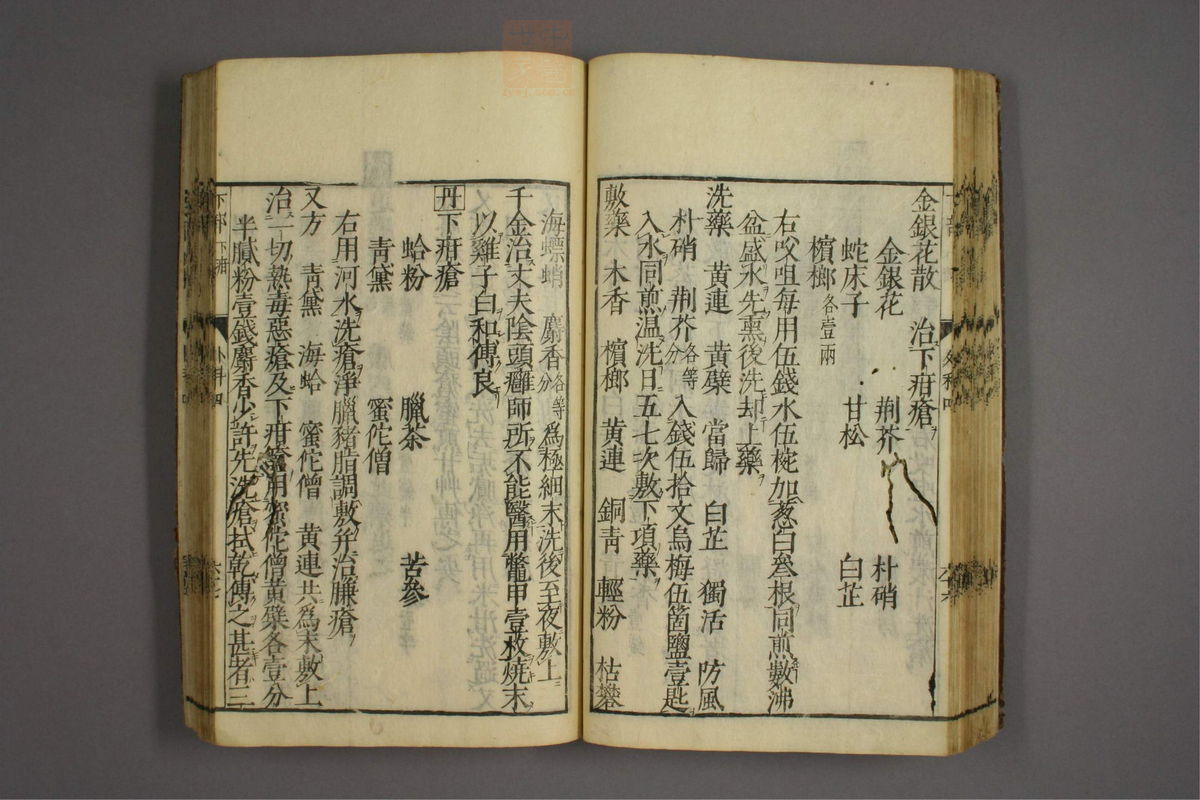 金銀花散　治下疳瘡
金銀花　荆芥　朴硝
蛇床子　甘松　白芷
檳榔各壹兩
右㕮咀每用伍錢水伍椀加葱白叁根同煎數沸
盆盛水先熏後洗却上藥
洗藥　黄連　黄蘗　當歸　白芷　獨活　防風
朴硝　荆芥各等分入錢伍拾文烏梅伍箇鹽壹匙
入水同煎温洗日五七次敷下項藥
敷藥　木香　檳榔　黄連　銅青　輕粉　枯礬
海螵蛸　麝香各等分為極細末洗後至夜敷上
千金治丈夫陰頭癰師所不能醫用鼈甲壹枚燒末
以雞子白和傅良
丹下疳瘡
蛤粉　臘茶　苦參
青黛　蜜佗僧
右用河水洗瘡淨臘豬脂調敷并治臁瘡
又方　青黛　海蛤　蜜佗僧　黄連共為末敷上
治一切熱毒惡瘡及下疳瘡用蜜佗僧黄蘗各壹分
半膩粉壹錢麝香少許先洗瘡拭乾傅之甚者三
下部　下疳
外科四